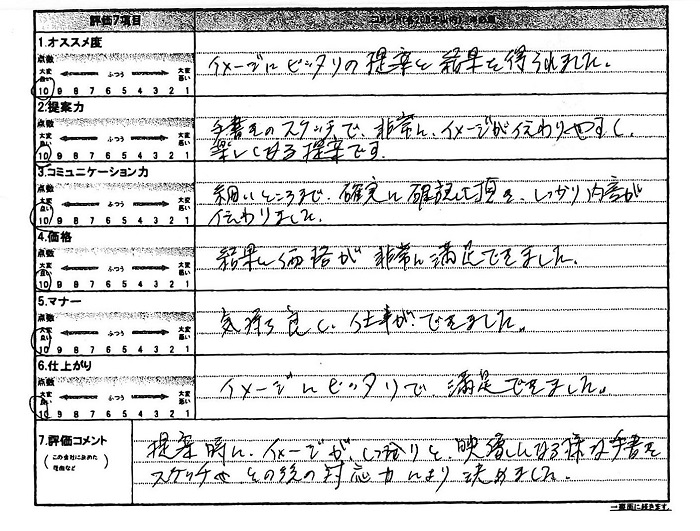 評価7項目
1.オススメ度
イメージにピッタリの提案と結果を得られました。
点数
大変良い ふつう 大変悪い
10 9 8 7 6 5 4 3 2 1
2.提案力
手書きのスケッチで、非常に、イメージが伝わりやすく、
楽しくなる提案です。
点数
大変良い ふつう 大変悪い
10 9 8 7 6 5 4 3 2 1
3.コミュニケーション力
細いところまで、確実に確認を頂き、しっかり内容が
伝わりました。
点数
大変良い ふつう 大変悪い
10 9 8 7 6 5 4 3 2 1
4.価格
結果と価格が非常に満足できました。
点数
大変良い ふつう 大変悪い
10 9 8 7 6 5 4 3 2 1
5.マナー
気持ち良く、仕事ができました。
点数
大変良い ふつう 大変悪い
10 9 8 7 6 5 4 3 2 1
6.仕上がり
イメージにピッタリで満足できました。
点数
大変良い ふつう 大変悪い
10 9 8 7 6 5 4 3 2 1
7.評価コメント
(この会社に決めた
理由など)
提案時に、イメージが、しっかりと、映像になる様な手書き
スケッチやその後の対応力により決めました。
→裏面に続きます。